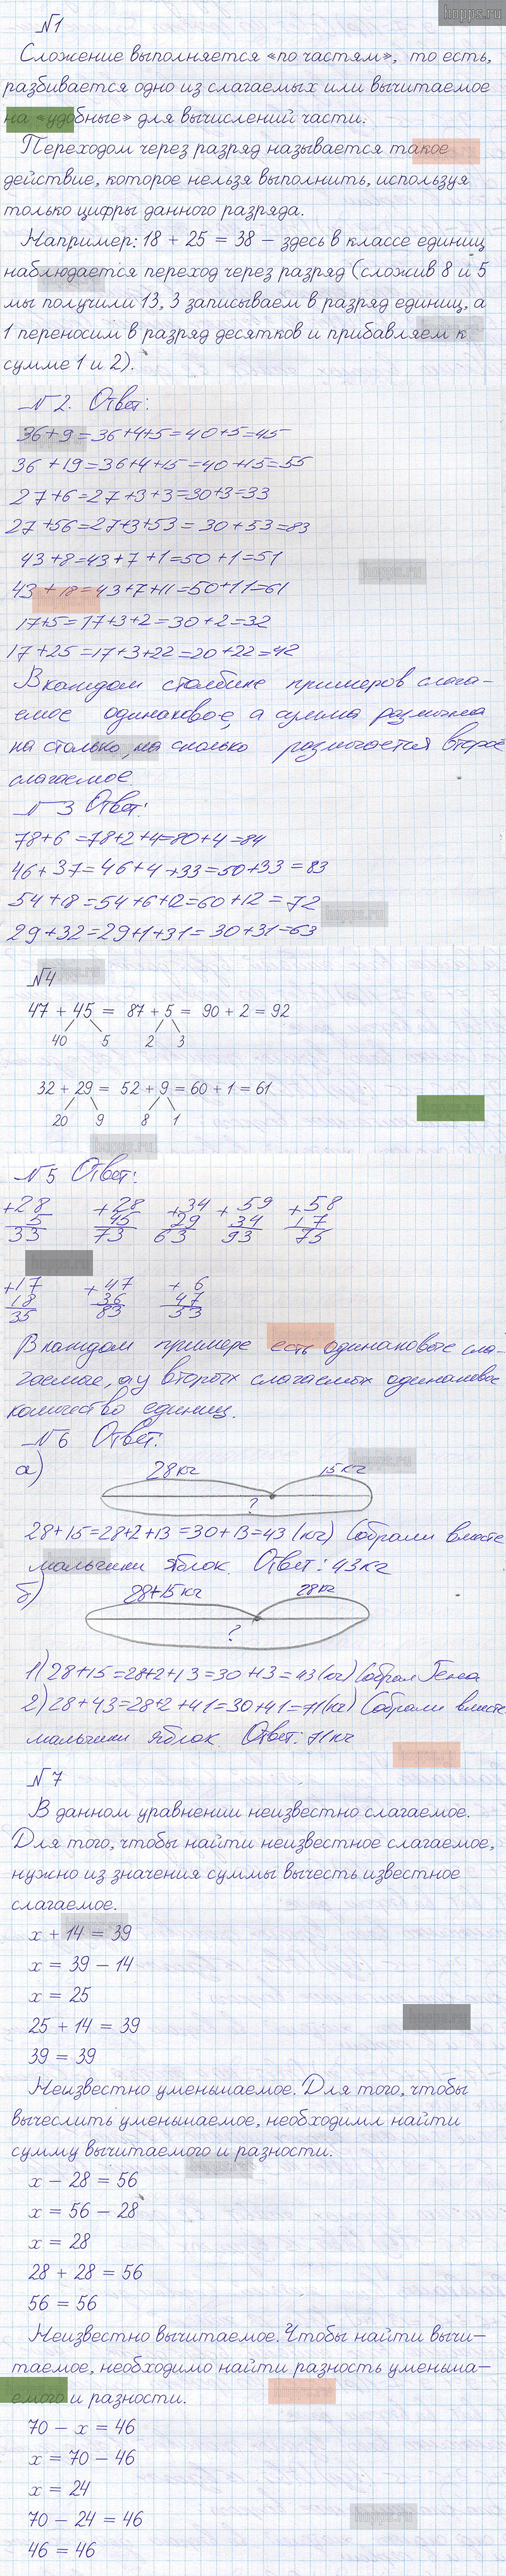 hopps.ru
№1
Сложение выполняется «по частям», то есть,
разбивается одно из слагаемых или вычитаемое
на «удобные» для вычислений части.
Переходом через разряд называется такое
действие, которое нельзя выполнить, используя
только цифры данного разряда.
Например: 18 + 25 = 38 – здесь в классе единиц
наблюдается переход через разряд (сложив 8 и 5
мы получили 13, 3 записываем в разряд единиц, а
1 переносим в разряд десятков и прибавляем к
сумме 1 и 2).
№2. Ответ:
36+9=36+4+5=40+5=45
36+19=36+4+15=40+15=55
27+6=27+3+3=30+3=33
27+56=27+3+53=30+53=83
43+8=43+7+1=50+1=51
43+18=43+7+11=50+11=61
17+5=17+3+2=30+2=32
17+25=17+3+22=20+22=42
В каждом столбике примеров слага-
емое одинаковое, а сумма различна
на столько, на сколько различается второе
слагаемое.
№3 Ответ:
78+6=78+2+4=80+4=84
46+37=46+4+33=50+33=83
54+18=54+6+12=60+12=72
hopps.ru
29+32=29+1+31=30+31=63
hopps.ru
№4
47 + 45 = 87 + 5 = 90 + 2 = 92
40 5 2 3
32 + 29 = 52 + 9 = 60 + 1 = 61
20 9 8 1
hopps.ru
№5 Ответ:
+28 +28 +34 +59 +58
5 45 29 34 17
33 73 63 93 75
+17 +47 +6
18 36 47
35 83 53
В каждом примере есть одинаковые сла-
гаемые, а у вторых слагаемых одинаковое
количество единиц.
№6 Ответ:
hopps.ru
а) 28кг 15кг
?
28+15=28+2+13=30+13=43 (кг) Собрали вместе
мальчики яблок. Ответ: 43кг
б) 28+15кг 28кг
?
1) 28+15=28+2+13=30+13=43(кг) Собрал Гена
2) 28+43=28+2+41=30+41=71(кг) Собрали вместе
мальчики яблок. Ответ: 71кг
№7
В данном уравнении неизвестно слагаемое.
Для того, чтобы найти неизвестное слагаемое,
нужно из значения суммы вычесть известное
слагаемое.
x + 14 = 39
x = 39 – 14
x = 25
25 + 14 = 39
39 = 39
Неизвестно уменьшаемое. Для того, чтобы
вычеслить уменьшаемое, необходимл найти
сумму вычитаемого и разности.
x – 28 = 56
x = 56 – 28
x = 28
28 + 28 = 56
56 = 56
Неизвестно вычитаемое. Чтобы найти вычи-
таемое, необходимо найти разность уменьша-
емого и разности.
70 – x = 46
x = 70 – 46
x = 24
70 – 24 = 46
hopps.ru
46 = 46